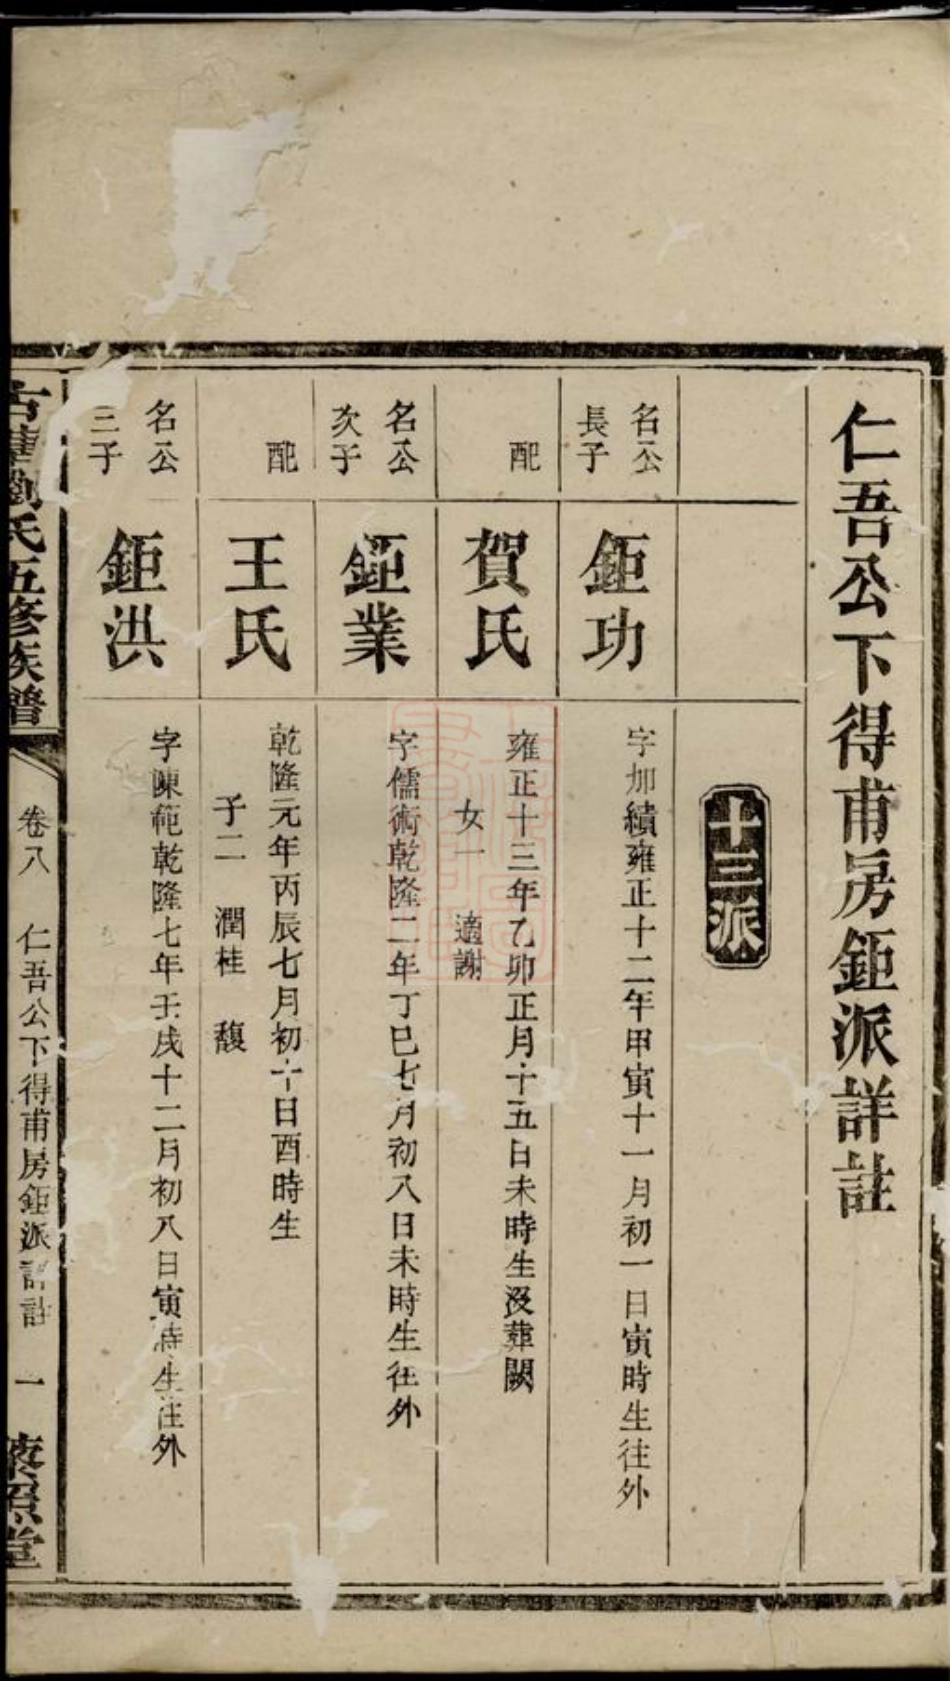 仁吾公下得甫房鉅派詳註
十三派
名公
長子
鉅功
字加績雍正十二年甲寅十一月初一日寅時生往外
配
賀氏
雍正十三年乙卯正月十五日未時生沒葬闕
女一 適謝
名公
次子
鉅業
字儒術乾隆二年丁巳七月初八日未時生往外
配
王氏
乾隆元年丙辰七月初十日酉時生
子二 潤桂 馥
名公
三子
鉅洪
字陳範乾隆七年壬戌十二月初八日寅時生往外
古華劉氏五修族譜
卷八 仁吾公下得甫房鉅派詳註 一
照堂